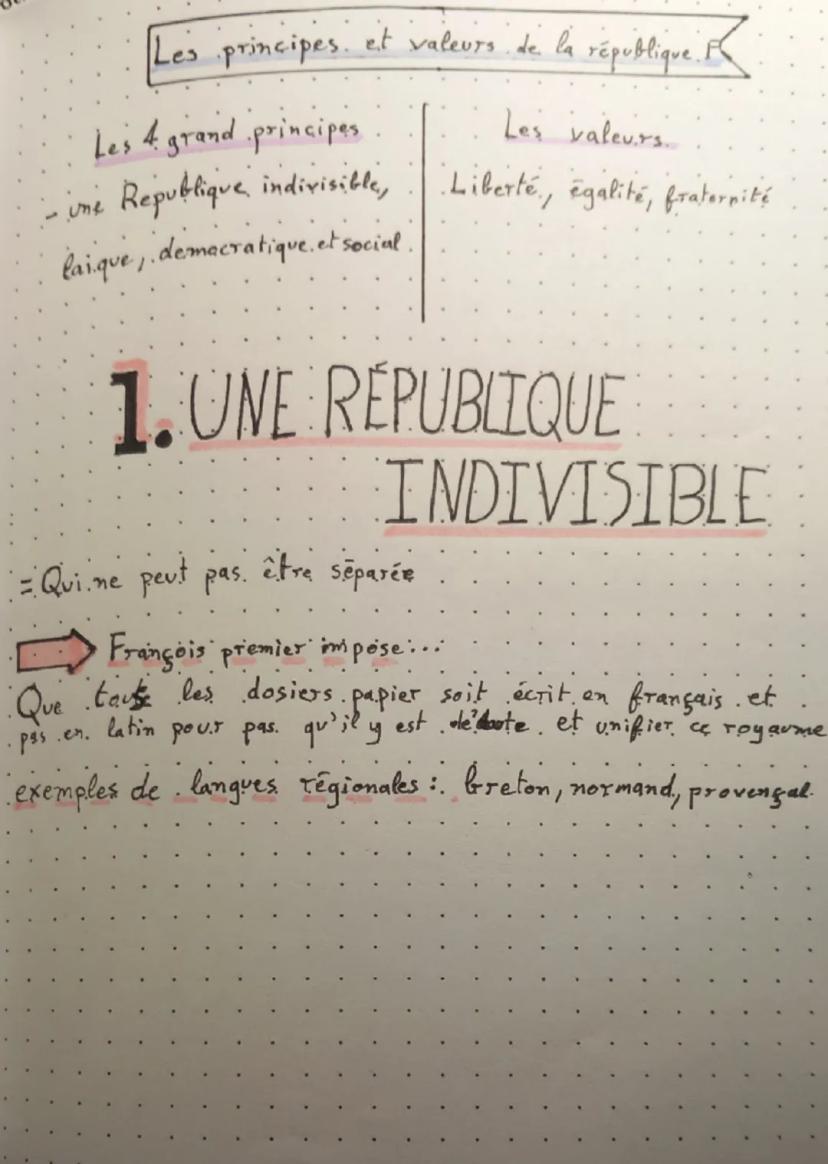 Les principes et valeurs de la république F
Les 4 grand principes
- une Republique indivisible,
laique, democratique et social
Les valeurs
Liberté, égalité, fraternité
1. UNE RÉPUBLIQUE
INDIVISIBLE
= Qui ne peut pas être séparée
François premier impose...
Que tous les dosiers papier soit écrit en français et
pas en latin pour pas qu'il y est de doute et unifier ce royaume
exemples de langues régionales : breton, normand, provençal